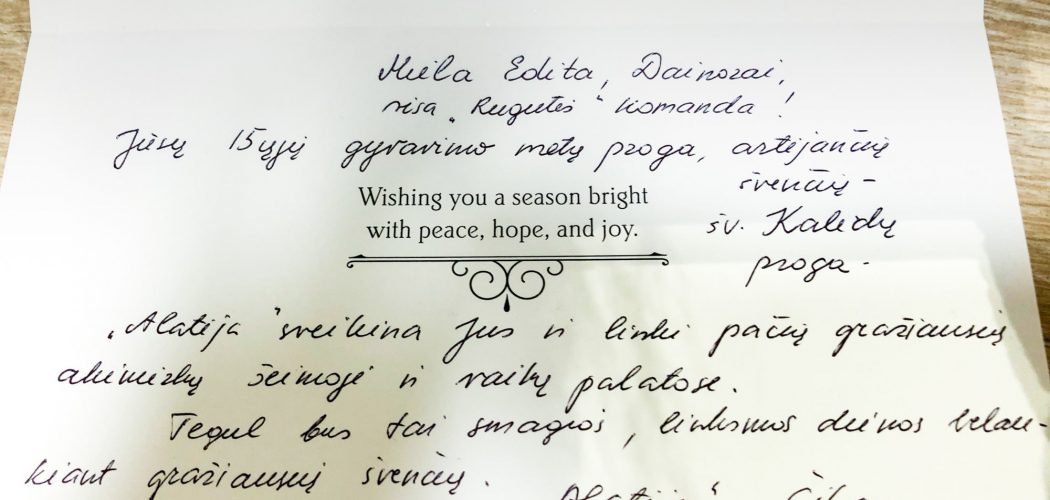 Miela Edita, Dainorai,
visa „Rugutės“ komanda!
Jūsų 15ųjų gyvavimo metų proga, artėjančių
švenčių -
šv. Kalėdų
proga -
Wishing you a season bright
with peace, hope, and joy.
„Alatėja“ sveikina Jus ir linki pačių gražiausių
akimirkų šeimoje ir vaikų palatose.
Tegul bus tai smagios, linksmos dienos belau-
kiant gražiausių švenčių.